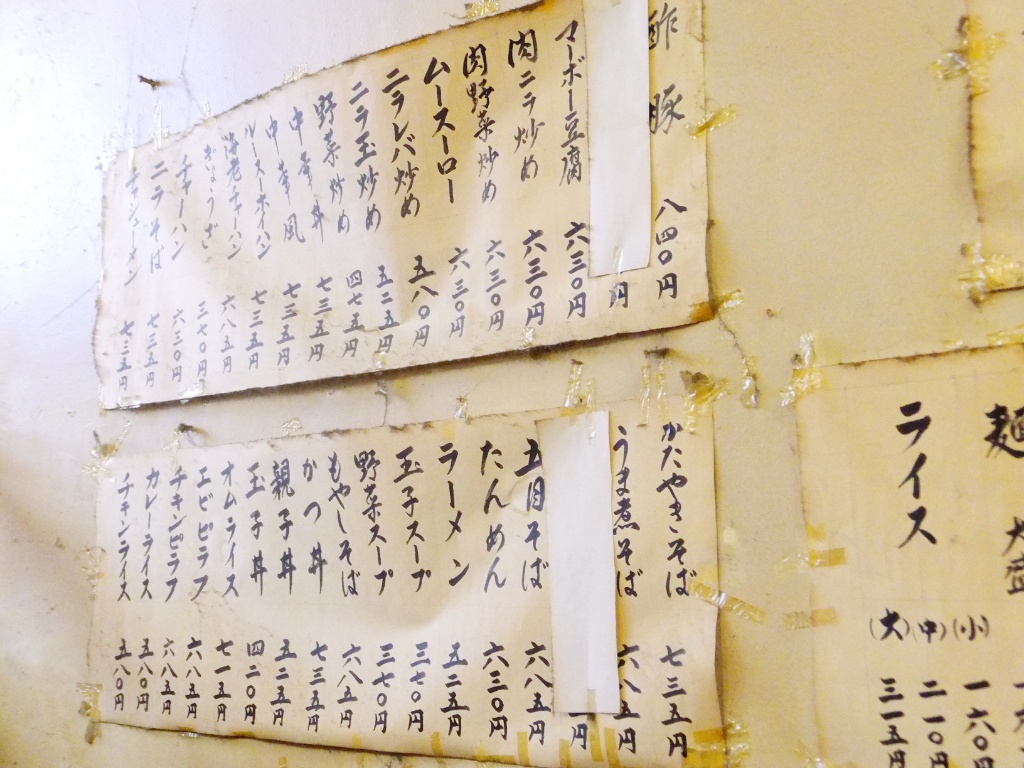 酢豚 八四〇円
円
マーボー豆腐 六三〇円
肉ニラ炒め 六三〇円
肉野菜炒め 六三〇円
ムースーロー 六三〇円
ニラレバ炒め 五八〇円
ニラ玉炒め 五二五円
野菜炒め 四七五円
中華丼 七三五円
中華風 七三五円
ルースーチャーハン 七三五円
海老チャーハン 六八五円
ぎょうざ 三七〇円
チャーハン 六三〇円
ニラそば 七三五円
チャシューメン 七三五円
かたやきそば 七三五円
うま煮そば 六八五円
円
五目そば 六八五円
たんめん 六三〇円
ラーメン 五二五円
玉子スープ 三七〇円
野菜スープ 三七〇円
もやしそば 六八五円
かつ丼 七三五円
親子丼 五二五円
玉子丼 四二〇円
オムライス 七一五円
エビピラフ 六八五円
チキンピラフ 六八五円
カレーライス 五八〇円
チキンライス 五八〇円
麺大盛
ライス
(小) 一六〇円
(中) 二一〇円
(大) 三一五円